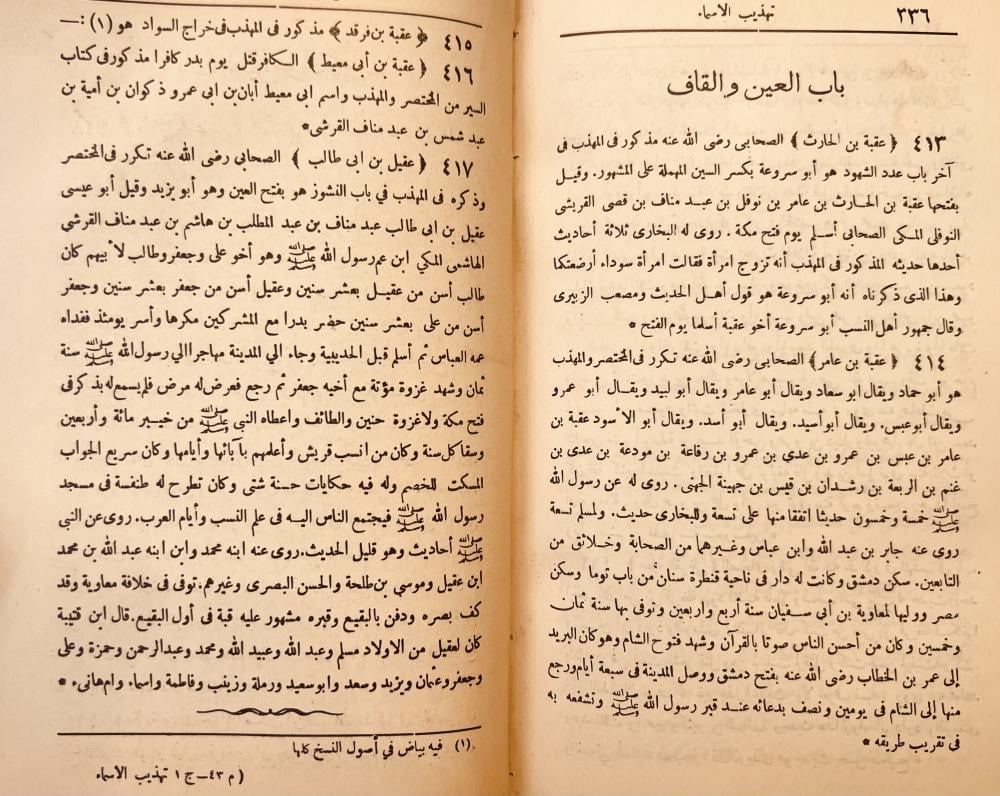 ٣٣٦
تهذيب الاسماء
باب العين والقاف
٤١٣ ﴿عقبة بن الحارث﴾ الصحابى رضى الله عنه مذكور فى المهذب فى
آخر باب عدد الشهود هو أبو سروعة بكسر السين المهملة على المشهور. وقيل
بفتحها عقبة بن الحارث بن عامر بن نوفل بن عبد مناف بن قصى القريشى
النوفلى المكى الصحابى أسلم يوم فتح مكة. روى له البخارى ثلاثة أحاديث
أحدها حديثه المذكور فى المهذب أنه تزوج امرأة فقالت امرأة سوداء أرضعتكما
وهذا الذى ذكرناه أنه أبو سروعة هو قول أهل الحديث ومصعب الزبيرى
وقال جمهور أهل النسب أبو سروعة أخو عقبة أسلما يوم الفتح *
٤١٤ ﴿عقبة بن عامر﴾ الصحابى رضى الله عنه تكرر فى المختصر والمهذب
هو أبو حماد ويقال ابو سعاد ويقال أبو عامر ويقال أبو لبيد ويقال أبو عمرو
ويقال أبوعبس. ويقال أبوأسيد. ويقال أبو أسد. ويقال أبو الأسود عقبة بن
عامر بن عبس بن عمرو بن عدي بن عمرو بن رفاعة بن مودعة بن عدى بن
غنم بن الربعة بن رشدان بن قيس بن جهينة الجهنى. روى له عن رسول الله
ﷺ خمسة وخمسون حديثا اتفقا منها على تسعة وللبخارى حديث. ولمسلم تسعة
روى عنه جابر بن عبد الله وابن عباس وغيرهما من الصحابة وخلائق من
التابعين. سكن دمشق وكانت له دار فى ناحية قنطرة سنان من باب توما وسكن
مصر ووليها لمعاوية بن أبى سفيان سنة أربع واربعين وتوفى بها سنة ثمان
وخمسين وكان من أحسن الناس صوتا بالقرآن وشهد فتوح الشام وهوكان البريد
إلى عمر بن الخطاب رضى الله عنه بفتح دمشق ووصل المدينة فى سبعة أيام ورجع
منها إلى الشام فى يومين ونصف بدعائه عند قبر رسول الله ﷺ وتشفعه به
فى تقريب طريقه *
٤١٥ ﴿عقبة بن فرقد﴾ مذكور فى المهذب فى خراج السواد هو (١) :—
٤١٦ ﴿عقبة بن أبى معيط﴾ الكافر قتل يوم بدر كافرا مذكور فى كتاب
السير من المختصر والمهذب واسم ابى معيط أبان بن ابى عمرو ذكوان بن أمية بن
عبد شمس بن عبد مناف القرشى *
٤١٧ ﴿عقيل بن ابى طالب﴾ الصحابى رضى الله عنه تكرر فى المختصر
وذكره فى المهذب في باب النشوز هو بفتح العين وهو أبو يزيد وقيل أبو عيسى
عقيل بن ابى طالب عبد مناف بن عبد المطلب بن هاشم بن عبد مناف القرشي
الهاشمى المكي ابن عم رسول الله ﷺ وهو أخو على وجعفر وطالب لأبيهم كان
طالب أسن من عقيل بعشر سنين وعقيل أسن من جعفر بعشر سنين وجعفر
أسن من على بعشر سنين حضر بدرا مع المشركين مكرها وأسر يومئذ ففداه
عمه العباس ثم أسلم قبل الحديبية وجاء الي المدينة مهاجرا الي رسول الله ﷺ سنة
ثمان وشهد غزوة مؤتة مع أخيه جعفر ثم رجع فعرض له مرض فلم يسمع له بذكر فى
فتح مكة ولا غزوة حنين والطائف واعطاه النبي ﷺ من خيبر مائة وأربعين
وسقا كل سنة وكان من انسب قريش وأعلمهم بآبائها وأيامها وكان سريع الجواب
المسكت للخصم وله فيه حكايات حسنة شتى وكان تطرح له طنفسة فى مسجد
رسول الله ﷺ فيجتمع الناس اليه فى علم النسب وأيام العرب. روى عن النبي
ﷺ أحاديث وهو قليل الحديث. روى عنه ابنه محمد وابن ابنه عبد الله بن محمد
ابن عقيل وموسي بن طلحة والحسن البصرى وغيرهم. توفى فى خلافة معاوية وقد
كف بصره ودفن بالبقيع وقبره مشهور عليه قبة فى أول البقيع. قال ابن قتيبة
كان لعقيل من الاولاد مسلم وعبد الله وعبيد الله ومحمد وعبدالرحمن وحمزة وعلى
وجعفر وعثمان ويزيد وسعد وابو سعيد ورملة وزينب وفاطمة واسماء وام هانىء *
(١) فيه بياض في أصول النسخ كلها
(م ٤٣—ج ١ تهذيب الاسماء